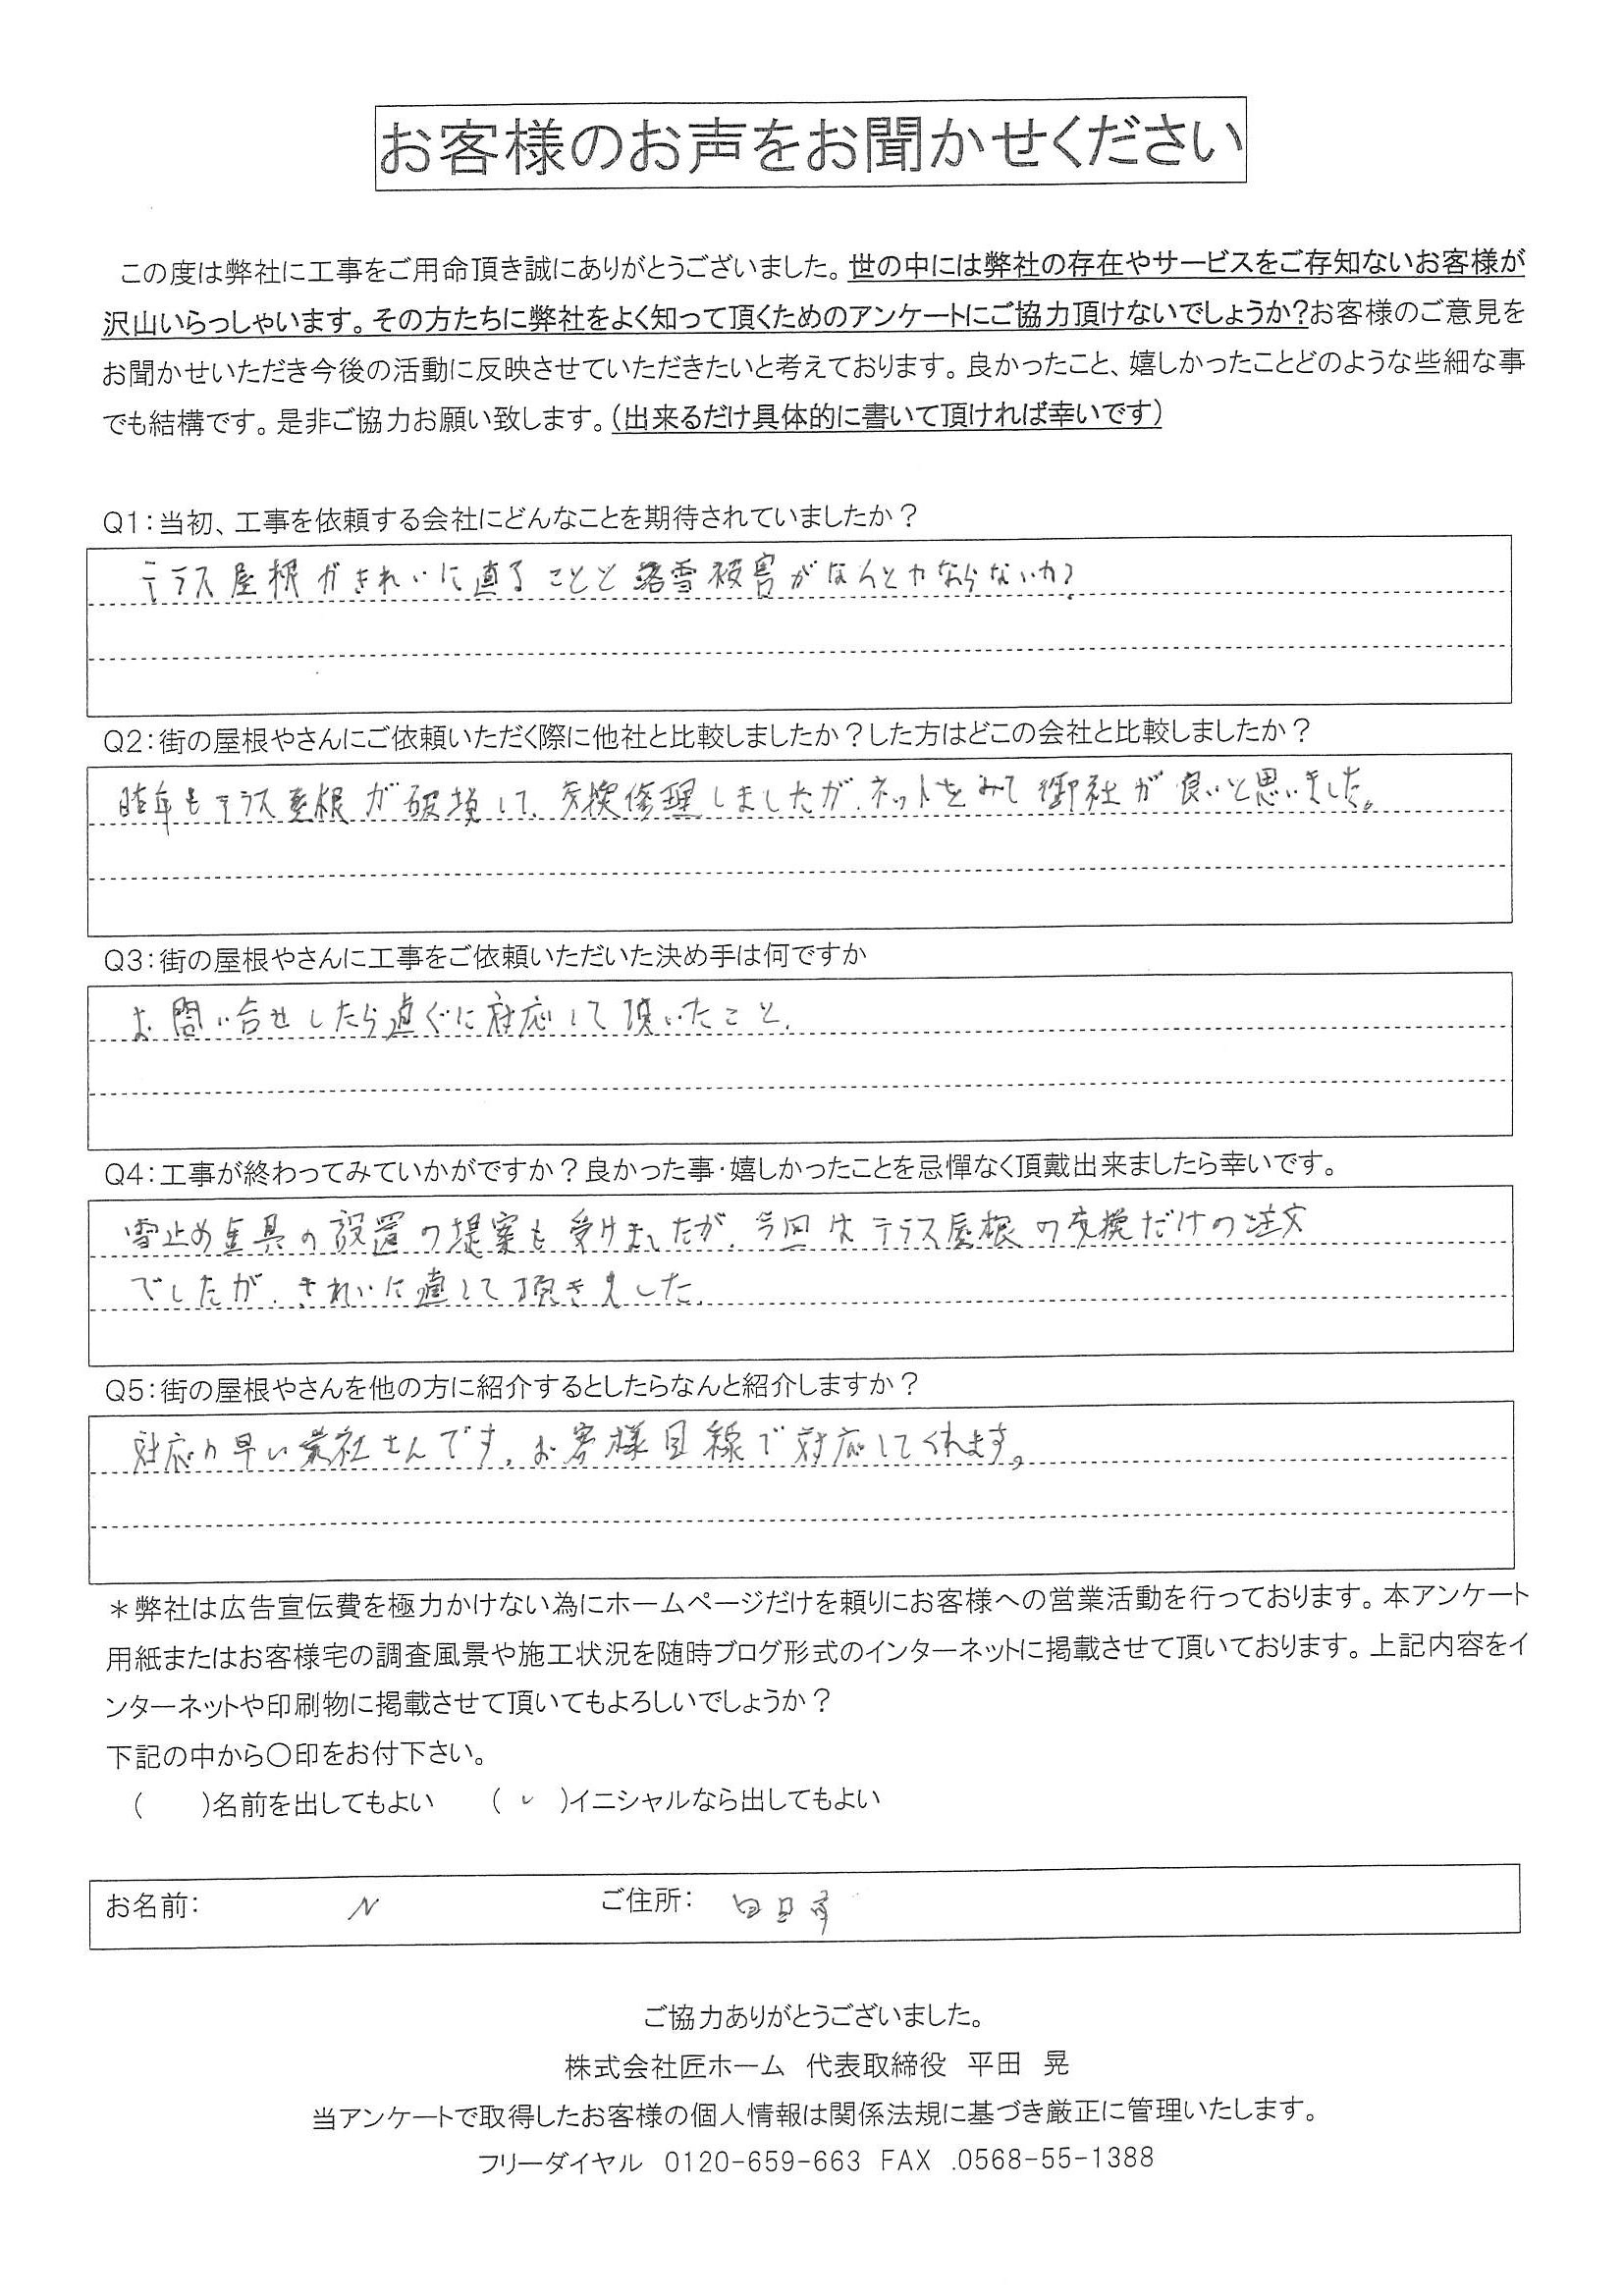 お客様のお声をお聞かせください
この度は弊社に工事をご用命頂き誠にありがとうございました。世の中には弊社の存在やサービスをご存知ないお客様が
沢山いらっしゃいます。その方たちに弊社をよく知って頂くためのアンケートにご協力頂けないでしょうか?お客様のご意見を
お聞かせいただき今後の活動に反映させていただきたいと考えております。良かったこと、嬉しかったことどのような些細な事
でも結構です。是非ご協力お願い致します。(出来るだけ具体的に書いて頂ければ幸いです)
Q1:当初、工事を依頼する会社にどんなことを期待されていましたか?
テラス屋根がきれいに直ることと落雪被害がなんとかならないか?
Q2:街の屋根やさんにご依頼いただく際に他社と比較しましたか?した方はどこの会社と比較しましたか?
昨年もテラス屋根が破損して、交換修理しましたが、ネットをみて御社が良いと思いました。
Q3:街の屋根やさんに工事をご依頼いただいた決め手は何ですか
お問い合せしたら直ぐに対応して頂いたこと、
Q4:工事が終わってみていかがですか?良かった事・嬉しかったことを忌憚なく頂戴出来ましたら幸いです。
雪止め金具の設置の提案も受けましたが、今回はテラス屋根の交換だけの注文
でしたが、きれいに直して頂きました。
Q5:街の屋根やさんを他の方に紹介するとしたらなんと紹介しますか?
対応の早い業社さんです。お客様目線で対応してくれます。
*弊社は広告宣伝費を極力かけない為にホームページだけを頼りにお客様への営業活動を行っております。本アンケート
用紙またはお客様宅の調査風景や施工状況を随時ブログ形式のインターネットに掲載させて頂いております。上記内容をイ
ンターネットや印刷物に掲載させて頂いてもよろしいでしょうか?
下記の中から〇印をお付下さい。
(　　)名前を出してもよい　(✓)イニシャルなら出してもよい
お名前: N　ご住所:
ご協力ありがとうございました。
株式会社匠ホーム　代表取締役　平田　晃
当アンケートで取得したお客様の個人情報は関係法規に基づき厳正に管理いたします。
フリーダイヤル　0120-659-663 FAX .0568-55-1388